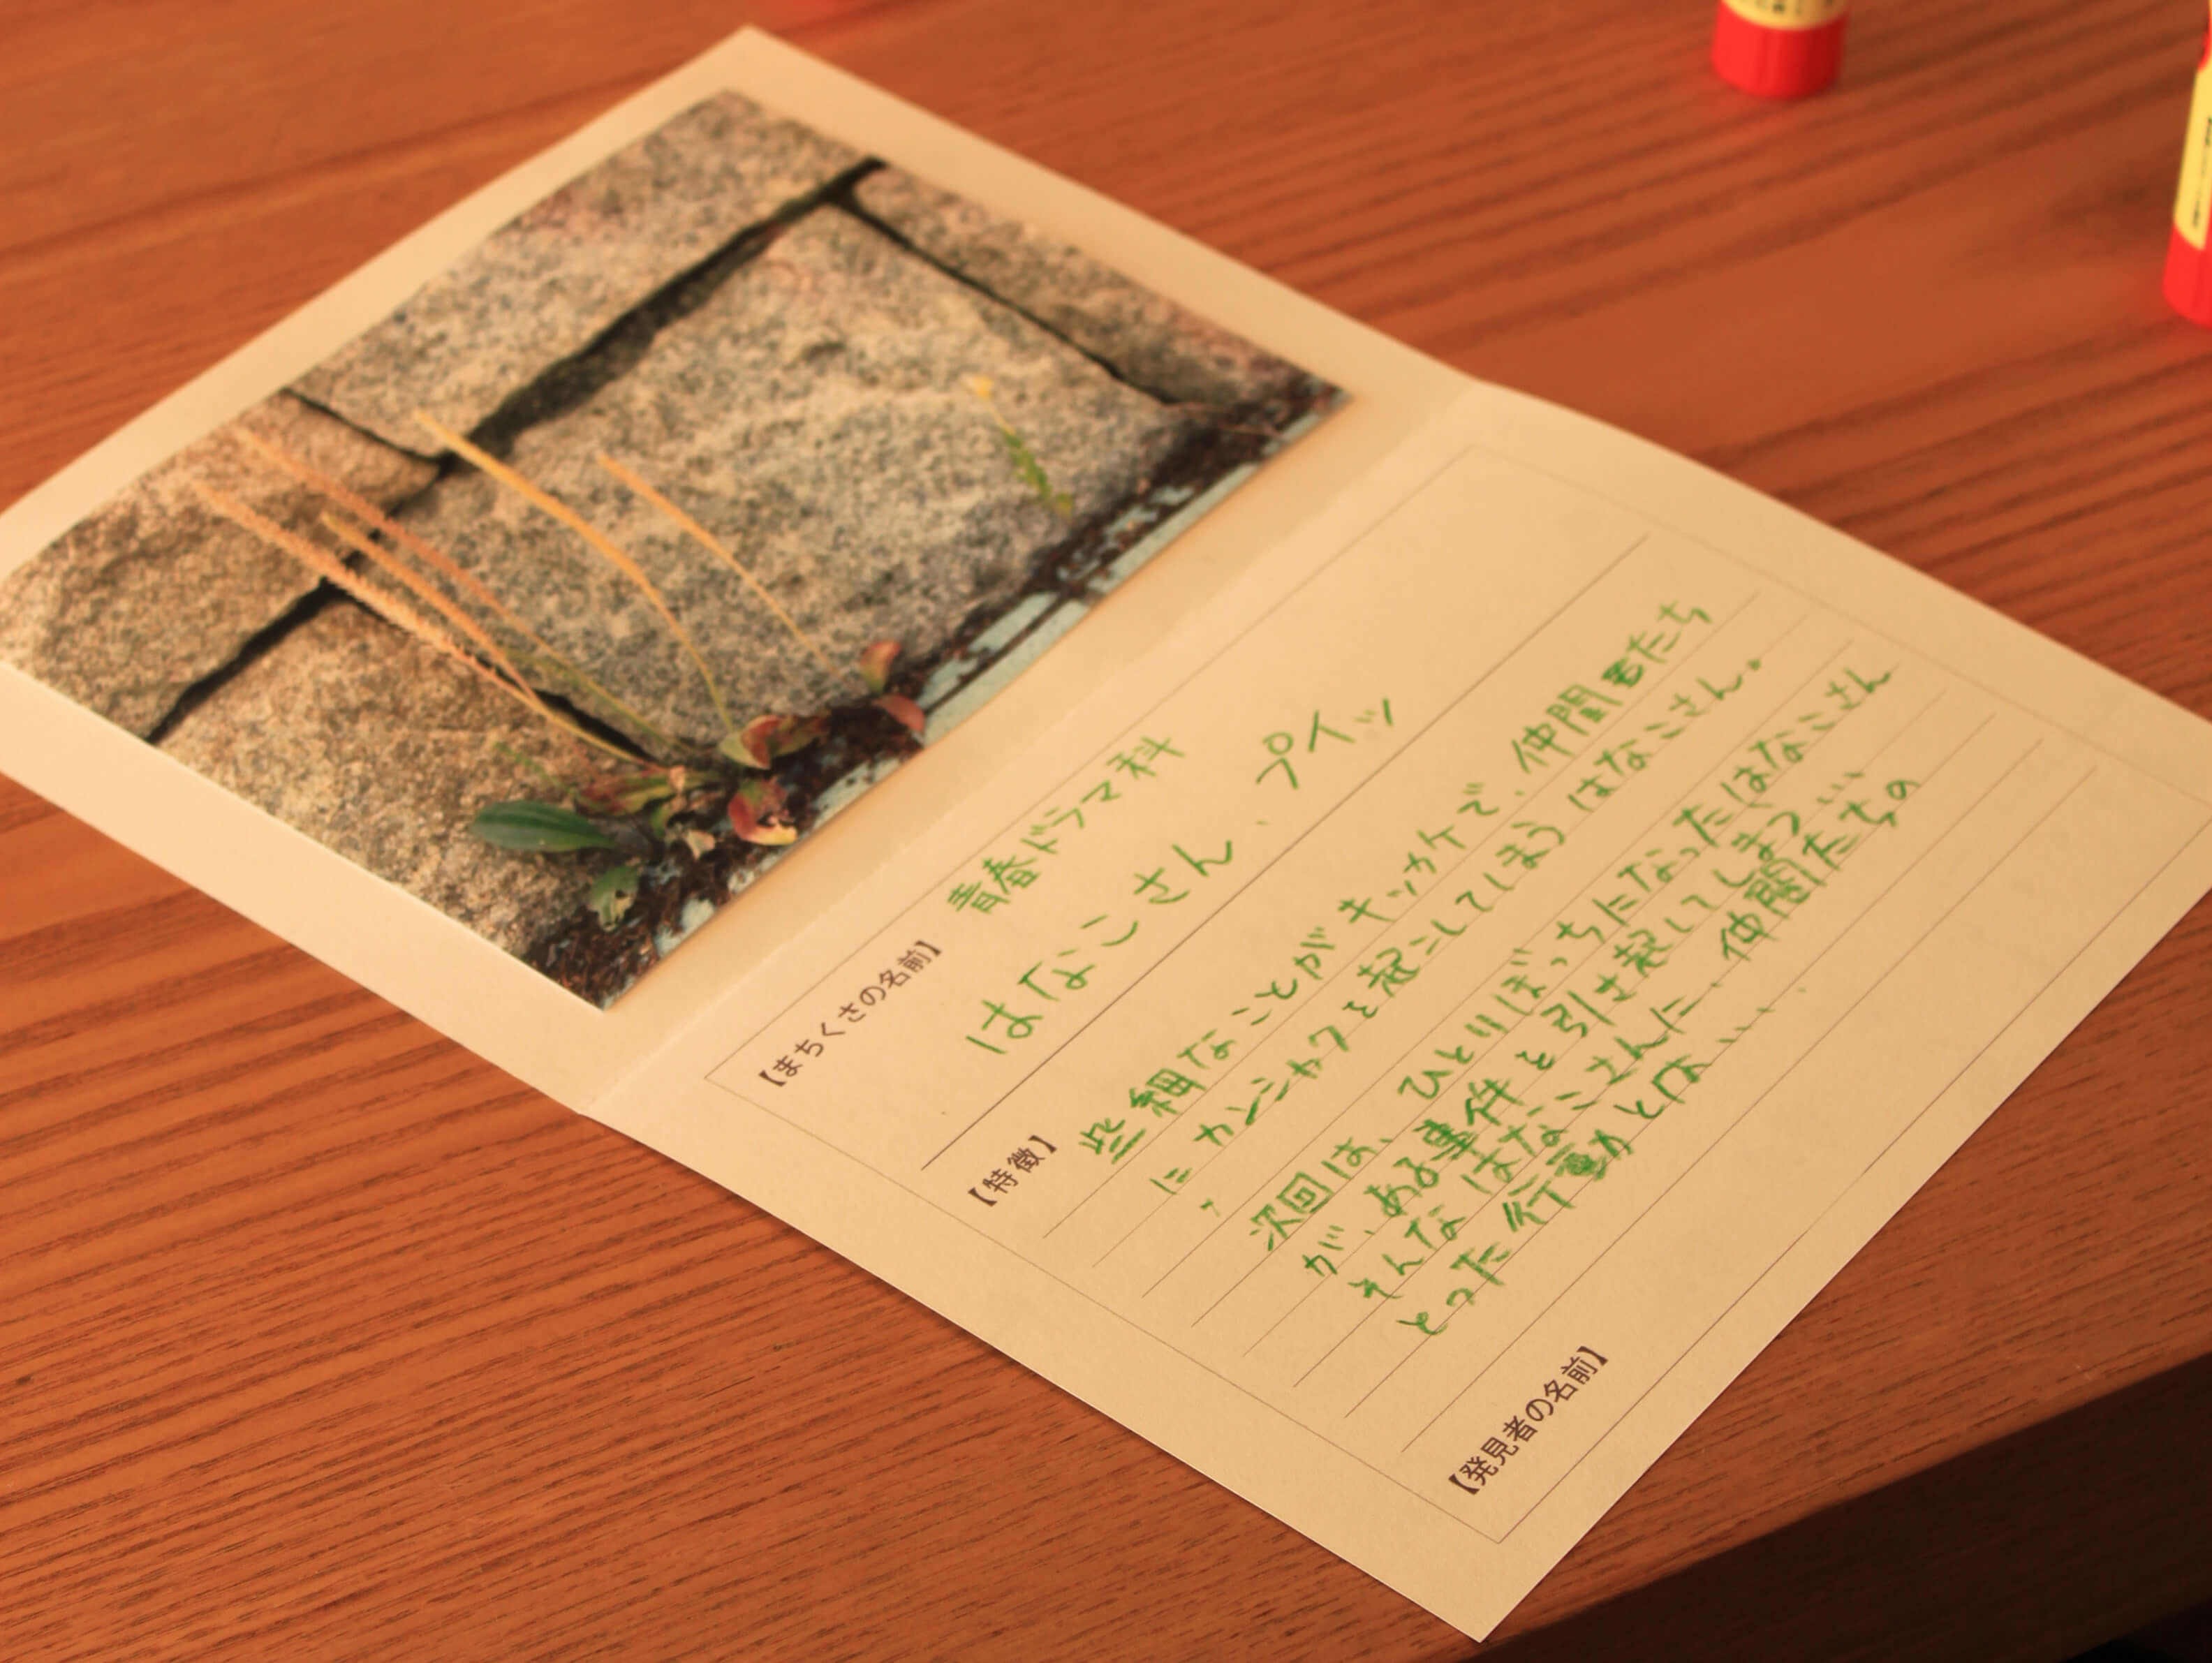 【まちくさの名前】 青春ドラマ科
はなこさん、プイッ
【特徴】 些細なことがキッカケで、仲間たち
に、カンシャクを起こしてしまうはなこさん。
次回は、ひとりぼっちになったはなこさん
が、ある事件を引き起してしまう…
そんなはなこさんに、仲間たちの
とった行動とは、、、、
【発見者の名前】